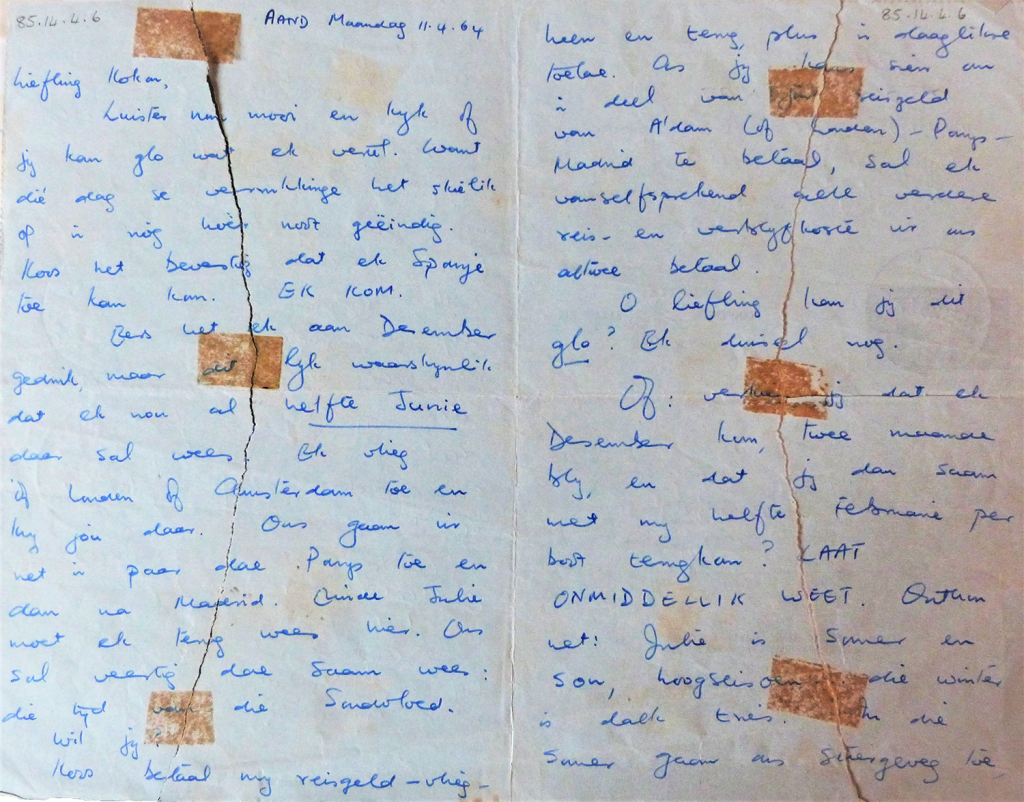 85.14.4.6
AAND Maandag 11.4.64
Liefling Kokon,
Luister nou mooi en kyk of
jy kan glo wat ek vertel. Want
dié dag se verwikkelinge het skielik
of 'n nóg hoër noot geëindig.
Koos het bevestig dat ek Spanje
toe kan kom. EK KOM.
Eers het ek aan Desember
gedink, maar dit lyk waarskynlik
dat ek nou al helfte Junie
daar sal wees. Ek vlieg
óf Londen óf Amsterdam toe en
kry jóú daar. Ons gaan vir
net 'n paar dae Parys toe en
dan na Madrid. Einde Julie
moet ek terug wees hier. Ons
sal veertig dae saam wees:
die tyd van die Sondvloed.
Wil jy?
Koos betaal my reisgeld – vlieg-
85.14.4.6
heen en terug, plus 'n daaglikse
toelae. As jy kans sien om
'n deel van jóú reisgeld
van A'dam (of Londen) – Parys –
Madrid te betaal, sal ek
vanselfsprekend alle verdere
reis- en verblyfkoste vir ons
altwee betaal.
O liefling kan jy dit
glo? Ek duisel nog.
Óf: verkies jy dat ek
Desember kom, twee maande
bly, en dat jy dan saam
met my helfte Februarie per
boot terugkom? LAAT
ONMIDDELLIK WEET. Onthou
net: Julie is somer en
son, hoogseisoen; die winter
is dalk triets. In die
somer gaan ons stiergeveg toe,